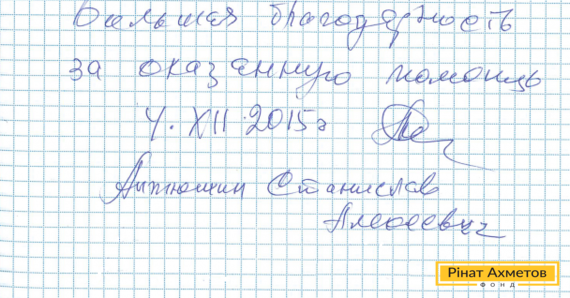 Большая благодарность
за оказанную помощь
4. XII 2015г
Антюшин Станислав
Алексеевич
Рінат Ахметов
ФОНД